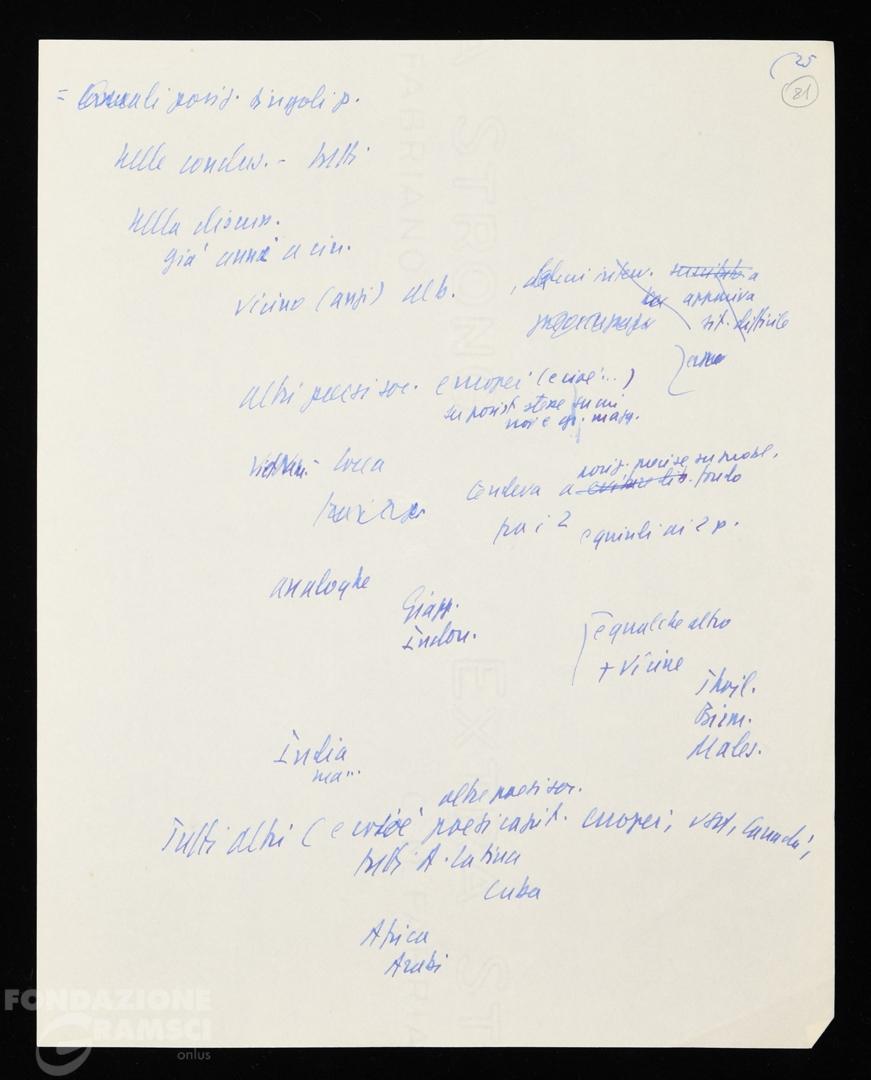 25
81
= quali posiz. singoli p.
Nelle conclus. - tutti
Nella discuss.
già anche a cin.
vicino (anzi) alb.
, alcuni interv.
a
appariva
preoccupata
sit. difficile
altri paesi soc. europei (e cioè ...)
su posiz. stesse su cui
noi e gr. magg.
Corea
posiz. precise su probl.
tendeva a fondo
tra i 2 e quindi ai 2 p.
analoghe
Giapp.
Indon.
e qualche altro
+ vicine
Thail.
Birm.
Males.
India
ma...
oltre paesi soc.
Tutti altri (e cioè paesi capit. europei, USA, Canadà,
tutti A. Latina
Cuba
Africa
Arabi
FABRIANO
EXTRA STRONG
FONDAZIONE
GRAMSCI
onlus